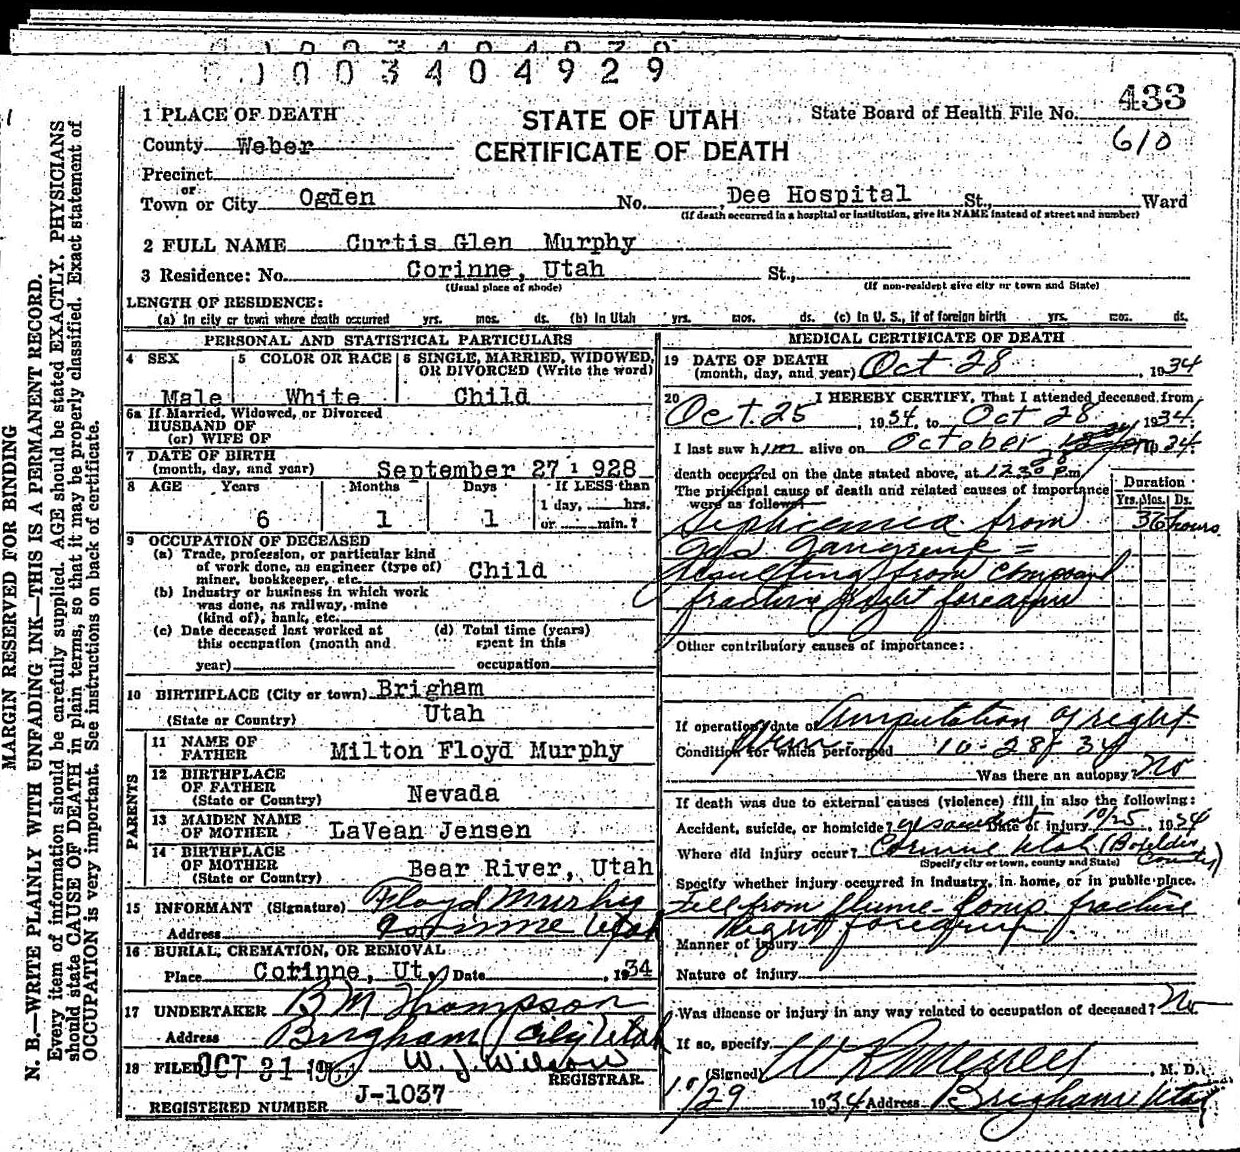 1003404929
STATE OF UTAH
CERTIFICATE OF DEATH
State Board of Health File No. 433
610
1 PLACE OF DEATH
County Weber
Precinct
or
Town or City Ogden No. Dee Hospital St., Ward
(If death occurred in a hospital or institution, give its NAME instead of street and number)
2 FULL NAME Curtis Glen Murphy
3 Residence: No. Corinne, Utah St.,
(Usual place of abode) (If non-resident give city or town and State)
LENGTH OF RESIDENCE:
(a) In city or town where death occurred yrs. mos. ds. (b) In Utah yrs. mos. ds. (c) In U. S., if of foreign birth yrs. mos. ds.
PERSONAL AND STATISTICAL PARTICULARS
4 SEX Male
5 COLOR OR RACE White
6 SINGLE, MARRIED, WIDOWED, OR DIVORCED (Write the word) Child
6a If Married, Widowed, or Divorced
HUSBAND OF
(or) WIFE OF
7 DATE OF BIRTH
(month, day, and year) September 27 1928
8 AGE Years Months Days If LESS than
1 day, hrs.
6 1 1 or min.?
9 OCCUPATION OF DECEASED
(a) Trade, profession, or particular kind
of work done, as engineer (type of)
miner, bookkeeper, etc. Child
(b) Industry or business in which work
was done, as railway, mine
(kind of), bank, etc.
(c) Date deceased last worked at
this occupation (month and
year)
(d) Total time (years)
spent in this
occupation
10 BIRTHPLACE (City or town) Brigham
(State or Country) Utah
PARENTS
11 NAME OF
FATHER Milton Floyd Murphy
12 BIRTHPLACE
OF FATHER
(State or Country) Nevada
13 MAIDEN NAME
OF MOTHER LaVean Jensen
14 BIRTHPLACE
OF MOTHER
(State or Country) Bear River, Utah
15 INFORMANT (Signature) Floyd Murphy
Address Corinne Utah
16 BURIAL, CREMATION, OR REMOVAL
Place Corinne, Ut. Date , 1934
17 UNDERTAKER B M Thompson
Address Brigham City Utah
18 FILED OCT 31 19 W. J. Wilson
REGISTRAR.
REGISTERED NUMBER J-1037
MEDICAL CERTIFICATE OF DEATH
19 DATE OF DEATH
(month, day, and year) Oct. 28, 1934
20 I HEREBY CERTIFY, That I attended deceased from
Oct. 25, 1934, to Oct 28, 1934.
I last saw him alive on October 28 1934.
death occurred on the date stated above, at 12:30 P.m
The principal cause of death and related causes of importance
were as follows:
Duration
Yrs. Mos. Ds.
Septicemia from 36 hours
gas gangrene =
resulting from compound
fracture right forearm
Other contributory causes of importance:
If operation, date of Amputation of right
Condition for which performed 10-28-34
Was there an autopsy? No
If death was due to external causes (violence) fill in also the following:
Accident, suicide, or homicide? accident Date of injury 10/25, 1934
Where did injury occur? Corinne Utah (Boxelder County)
(Specify city or town, county and State)
Specify whether injury occurred in industry, in home, or in public place.
Fell from flume - Comp. fracture
Right forearm
Manner of injury
Nature of injury
Was disease or injury in any way related to occupation of deceased? No
If so, specify
(Signed) W R Merrell, M. D.
10/29 1934 Address Brigham Utah
MARGIN RESERVED FOR BINDING
N. B.—WRITE PLAINLY WITH UNFADING INK—THIS IS A PERMANENT RECORD.
Every item of information should be carefully supplied. AGE should be stated EXACTLY. PHYSICIANS
should state CAUSE OF DEATH in plain terms, so that it may be properly classified. Exact statement of
OCCUPATION is very important. See instructions on back of certificate.